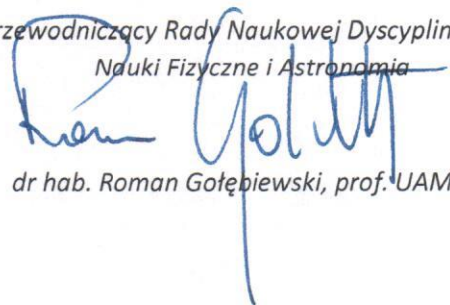 rzewodniczący Rady Naukowej Dyscyplin
Nauki Fizyczne i Astronomia
dr hab. Roman Gołębiewski, prof. UAM